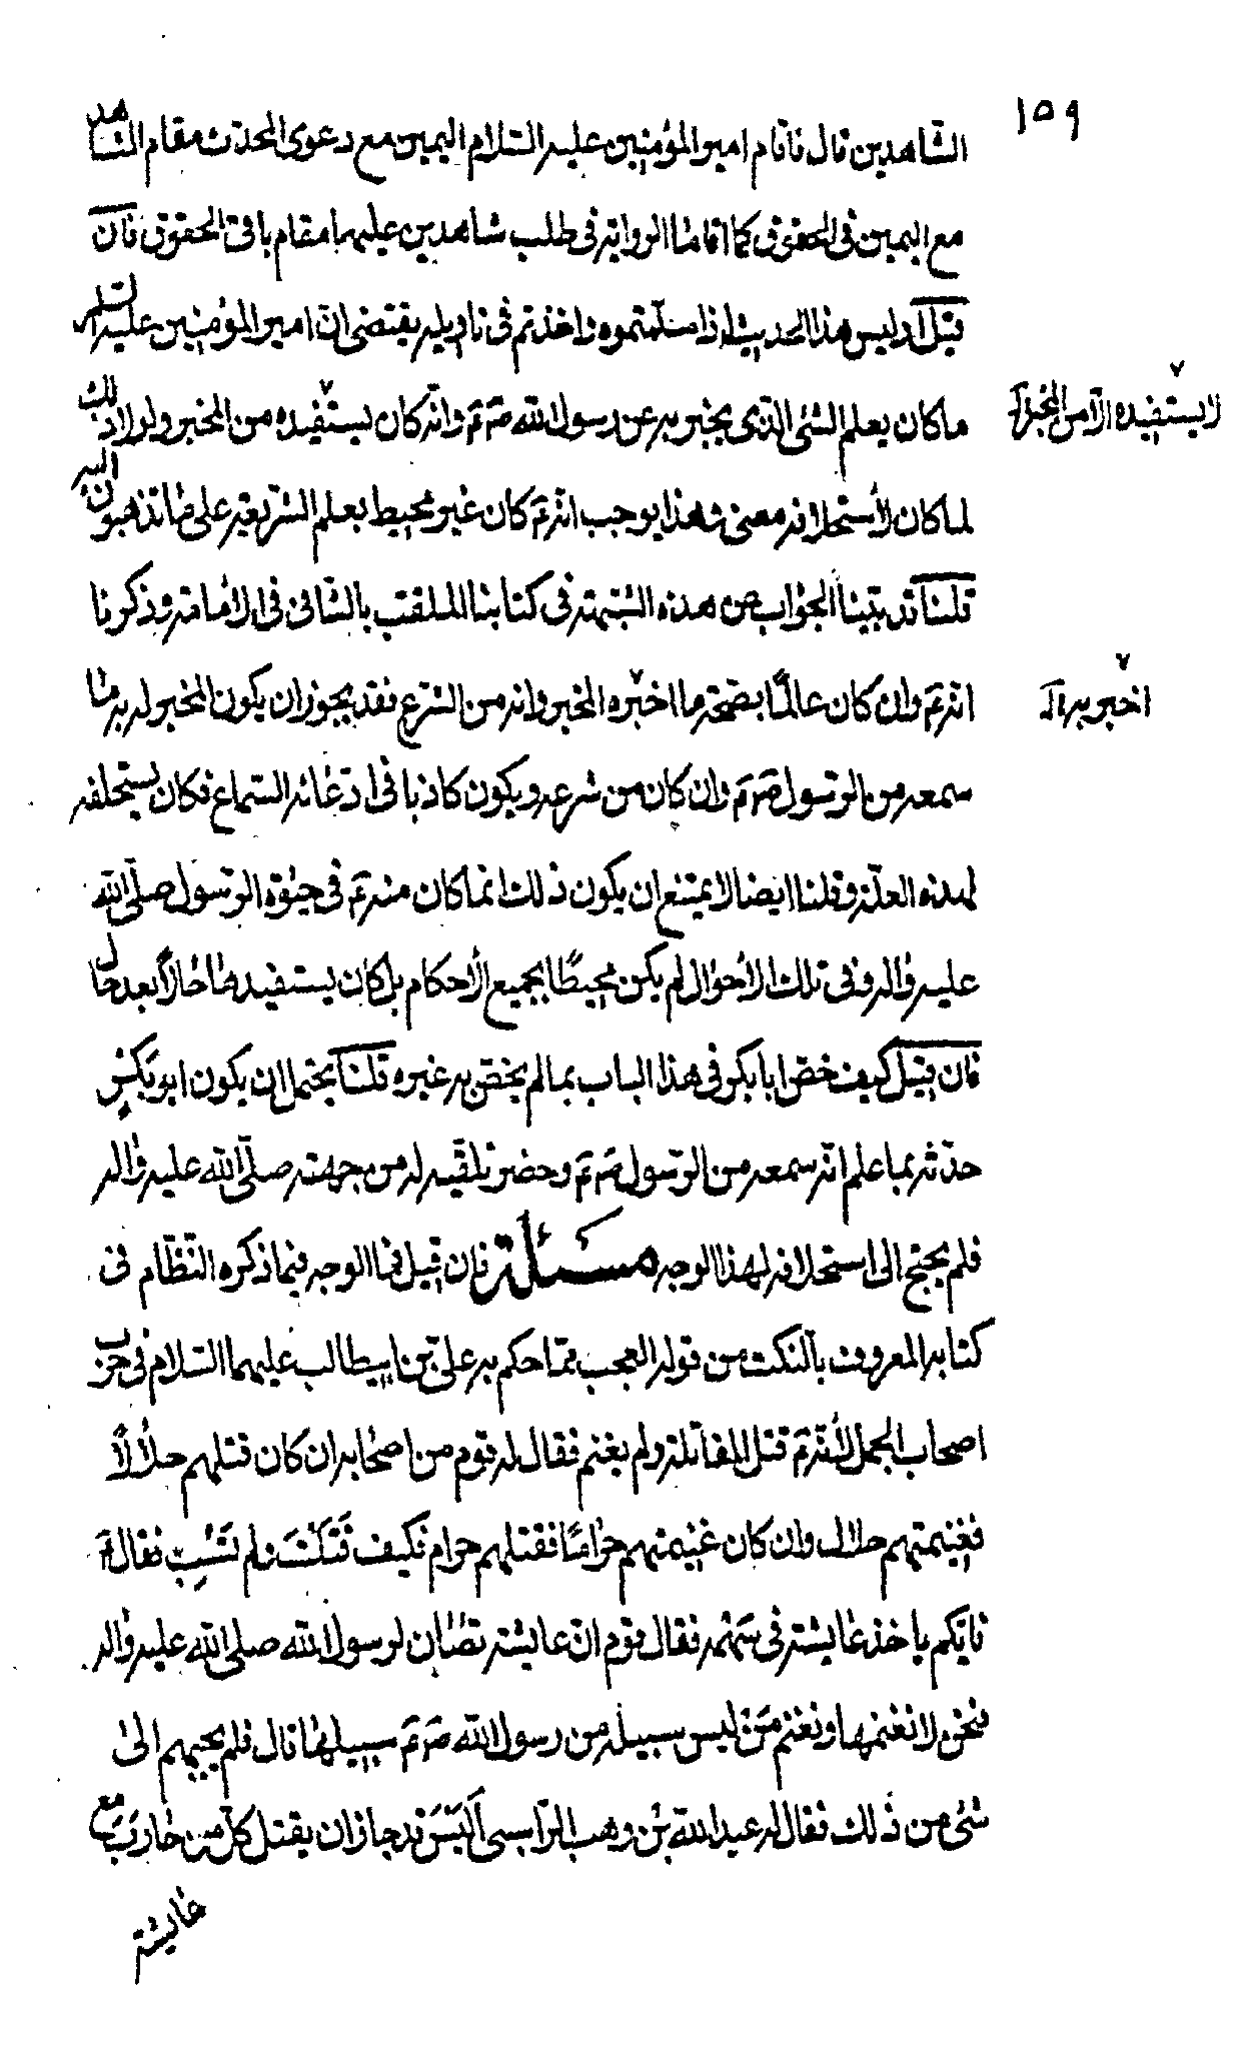 ١٥٩
الشاهدين قال فاقام امير المؤمنين عليه السّلام اليمين مع دعوى المحدّث مقام الشاهد
مع اليمين فى الحقوق كما اقامنا الرواية فى طلب شاهدين عليها مقام باقى الحقوق فان
قيل اوليس هذا الحديث اذا سلّمتموه واخذتم فى تاويله يقتضى انّ امير المؤمنين عليه السّلم
ما كان يعلم الشئ الذى يخبر به عن رسول اللّه ص م ع وانّه كان يستفيده من المخبر ولولا ذلك
لا يستفيده الّا من المخبر خ
لما كان لأستحلافه معنى وهذا يوجب انّه ع كان غير محيط بعلم الشّريعة على ما تذهبون اليه
قلنا قد بيّنا الجواب عن هذه الشّبهة فى كتابنا الملقّب بالشّافى فى الامامة وذكرنا
انّه ع وان كان عالمًا بصحّة ما اخبره المخبر وانه من الشّرع فقد يجوز ان يكون المخبر له به ما
اخبر به خ
سمعه من الرّسول ص م ع وان كان من شرعه ويكون كاذبا فى ادّعائه السّماع فكان يستحلفه
لهذه العلّة وقلنا ايضا لا يمتنع ان يكون ذلك انّما كان منه ع فى حيٰوة الرّسول صلّى اللّه
عليه وٰاله وفى تلك الأحوال لم يكن محيطًا بجميع الأحكام بل كان يستفيدها حالًا بعد حال
فان قيل كيف خصّ ابا بكر فى هذا الباب بما لم يخصّ به غيره قلنا يحتمل ان يكون ابو بكر
حدّثه بما علم انّه سمعه من الرّسول ص م ع وحضر تلقّيه له من جهته صلّى اللّه عليه وٰاله
فلم يحتج الى استحلافه لهذا الوجه مسئلة فان قيل فما الوجه فيما ذكره النّظّام فى
كتابه المعروف بالنكت من قوله العجب ممّا حكم به علىّ بن ابيطالب عليهما السّلام فى حرب
اصحاب الجمل لأنّه ع قتل المقاتلة ولم يغنم فقال له قوم من اصحابه ان كان قتلهم حلالًا
فغنيمتهم حلال وان كان غنيمتهم حرامًا فقتلهم حرام فكيف قَتَلْتَ ولم تَسْبِ فقال ع
فايّكم ياخذ عايشة فى سهمه فقال قوم انّ عايشة تصان لرسول اللّه صلى اللّه عليه وٰاله
فنحن لا نغنمها ونغنم مَنْ ليس سبيله من رسول اللّه ص م ع سبيلها قال فلم يجبهم الىٰ
شئ من ذلك فقال له عبد اللّه بْن وهب الرّاسبى اَلَيْسَ قد جاز ان يقتل كلّ من حارَبَ مع
عايشة